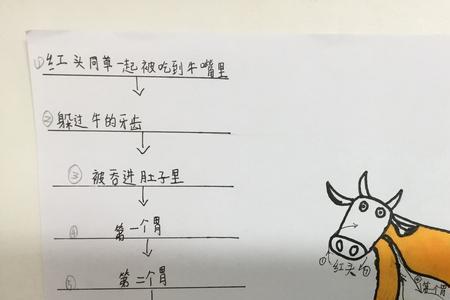 ①红头同草一起被吃到牛嘴里
②躲过牛的牙齿
③被吞进肚子里
④第一个胃
⑤第二个胃
①红头
第一个胃